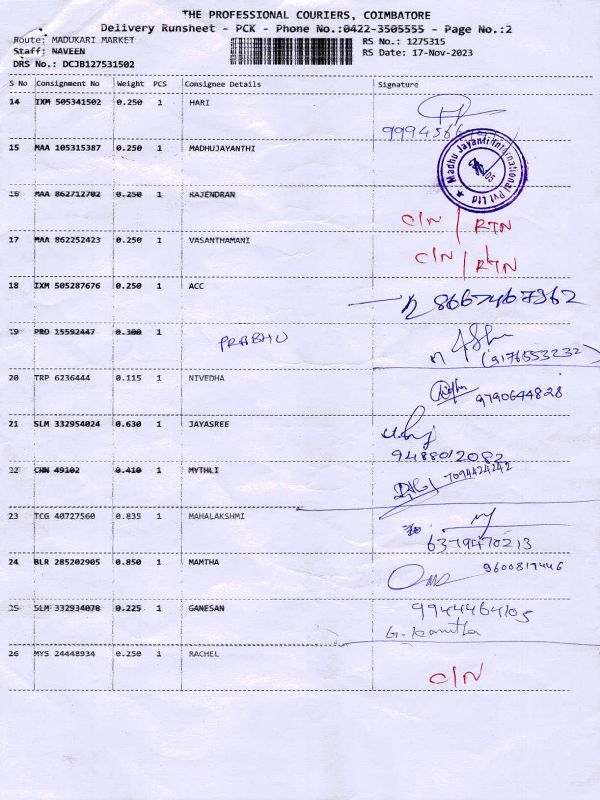 THE PROFESSIONAL COURIERS, COIMBATORE
Delivery Runsheet - PCK - Phone No.:0422-3505555 - Page No.:2
Route: MADUKARI MARKET RS No.: 1275315
Staff: NAVEEN RS Date: 17-Nov-2023
DRS No.: DCJB127531502
S No Consignment No Weight PCS Consignee Details Signature
14 IXM 505341502 0.250 1 HARI
15 MAA 105315387 0.250 1 MADHUJAYANTHI
Madhu Jayanti International Pvt Ltd
16 MAA 862712702 0.250 1 RAJENDRAN C/N / RTN
17 MAA 862252423 0.250 1 VASANTHAMANI C/N / RTN
18 IXM 505287676 0.250 1 ACC 8667467962
19 PRO 15592447 0.300 1 PRABHU
(9176553232)
20 TRP 6236444 0.115 1 NIVEDHA 9790644828
21 SLM 332954024 0.630 1 JAYASREE
9488012082
22 CHN 49102 0.410 1 MYTHLI 7094424242
23 TCG 40727560 0.835 1 MAHALAKSHMI
6379470213
24 BLR 285202905 0.850 1 MAMTHA 9600817446
25 SLM 332934078 0.225 1 GANESAN 9944464105
26 MYS 24448934 0.250 1 RACHEL C/N